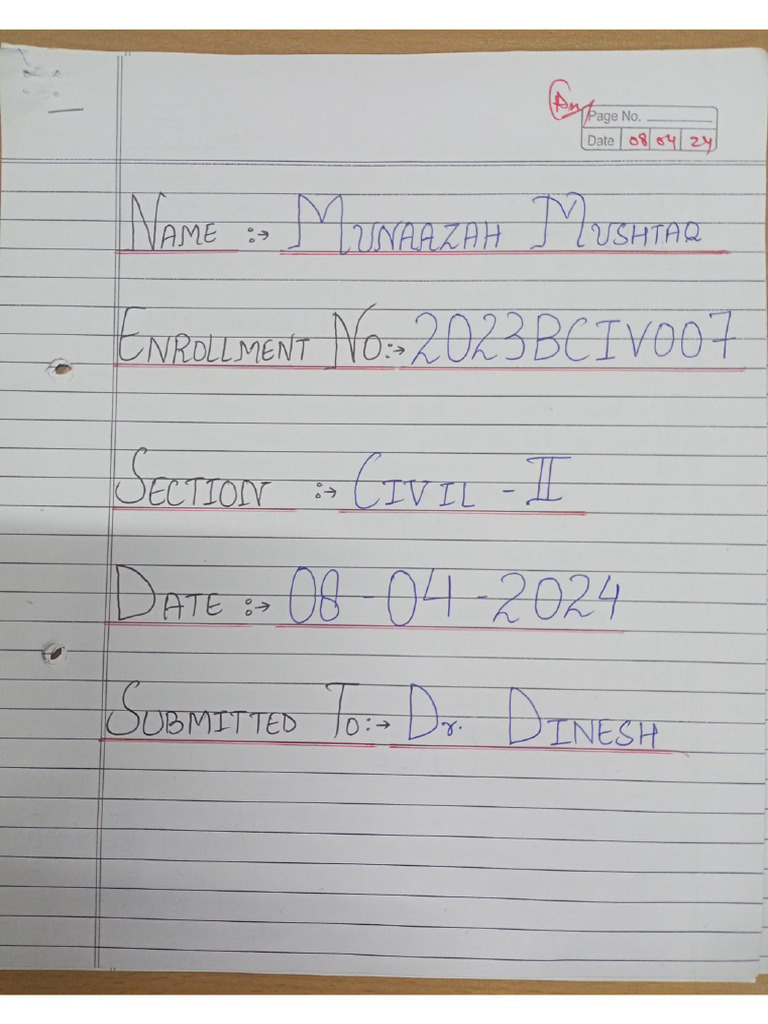 Page No.
Date 08 04 24
NAME :→ MUNAAZAH MUSHTAQ
ENROLLMENT NO:→ 2023BCIV007
SECTION :→ CIVIL - II
DATE :→ 08-04-2024
SUBMITTED TO:→ Dr. DINESH